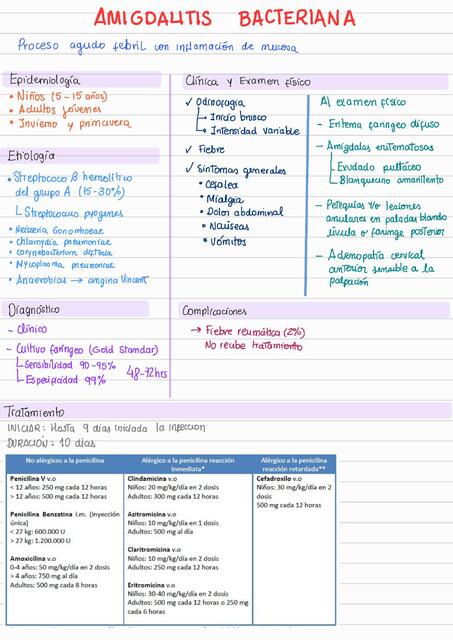 AMIGDALITIS BACTERIANA
Proceso agudo febril con inflamación de mucosa
Epidemiología
• Niños (5-15 años)
• Adultos jóvenes
• Invierno y primavera
Etiología
• Streptococo β hemolítico
del grupo A (15-30%)
Streptococcus pyogenes
• Neisseria Gonorrhoeae
• Chlamydia pneumoniae
• Corynebacterium difteria
• Mycoplasma pneumoniae
• Anaerobios → angina Vincent
Diagnóstico
- Clínico
- Cultivo faríngeo (Gold Standar)
Sensibilidad 90-95%
Especificidad 99%
48-72hrs
Clínica y Examen físico
✓ Odinofagia
Inicio brusco
Intensidad variable
✓ Fiebre
✓ Síntomas generales
• Cefalea
• Mialgia
• Dolor abdominal
• Naúseas
• Vómitos
Al examen físico
- Eritema faríngeo difuso
- Amígdalas eritematosas
Exudado pultáceo
Blanquecino amarillento
- Petequias y/o lesiones
anulares en paladar blando
úvula o faringe posterior
- Adenopatía cervical
anterior sensible a la
palpación
Complicaciones
→ Fiebre reumática (2%)
No recibe tratamiento
Tratamiento
INICIAR: Hasta 9 días iniciada la infección
DURACIÓN: 10 días
No alérgicos a la penicilina
Penicilina V v.o
< 12 años: 250 mg cada 12 horas
> 12 años: 500 mg cada 12 horas
Penicilina Benzatina i.m. (inyección
única)
< 27 kg: 600.000 U
> 27 kg: 1.200.000 U
Amoxicilina v.o
0-4 años: 50 mg/kg/día en 2 dosis
> 4 años: 750 mg al día
Adultos: 500 mg cada 8 horas
Alérgico a la penicilina reacción
inmediata*
Clindamicina v.o
Niños: 20 mg/kg/día en 2 dosis
Adultos: 300 mg cada 12 horas
Azitromicina v.o
Niños: 10 mg/kg/día en 1 dosis
Adultos: 500 mg al día
Claritromicina v.o
Niños: 10 mg/kg/día en 2 dosis
Adultos: 250 mg cada 12 horas
Eritromicina v.o
Niños: 30-40 mg/kg/día en 2 dosis
Adultos: 500 mg cada 12 horas o 250 mg
cada 6 horas
Alérgico a la penicilina
reacción retardada**
Cefadroxilo v.o
Niños: 30 mg/kg/día en 2
dosis
500 mg cada 12 horas